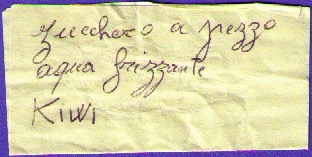 zucchero a pezzo
aqua frizzante
KIWI